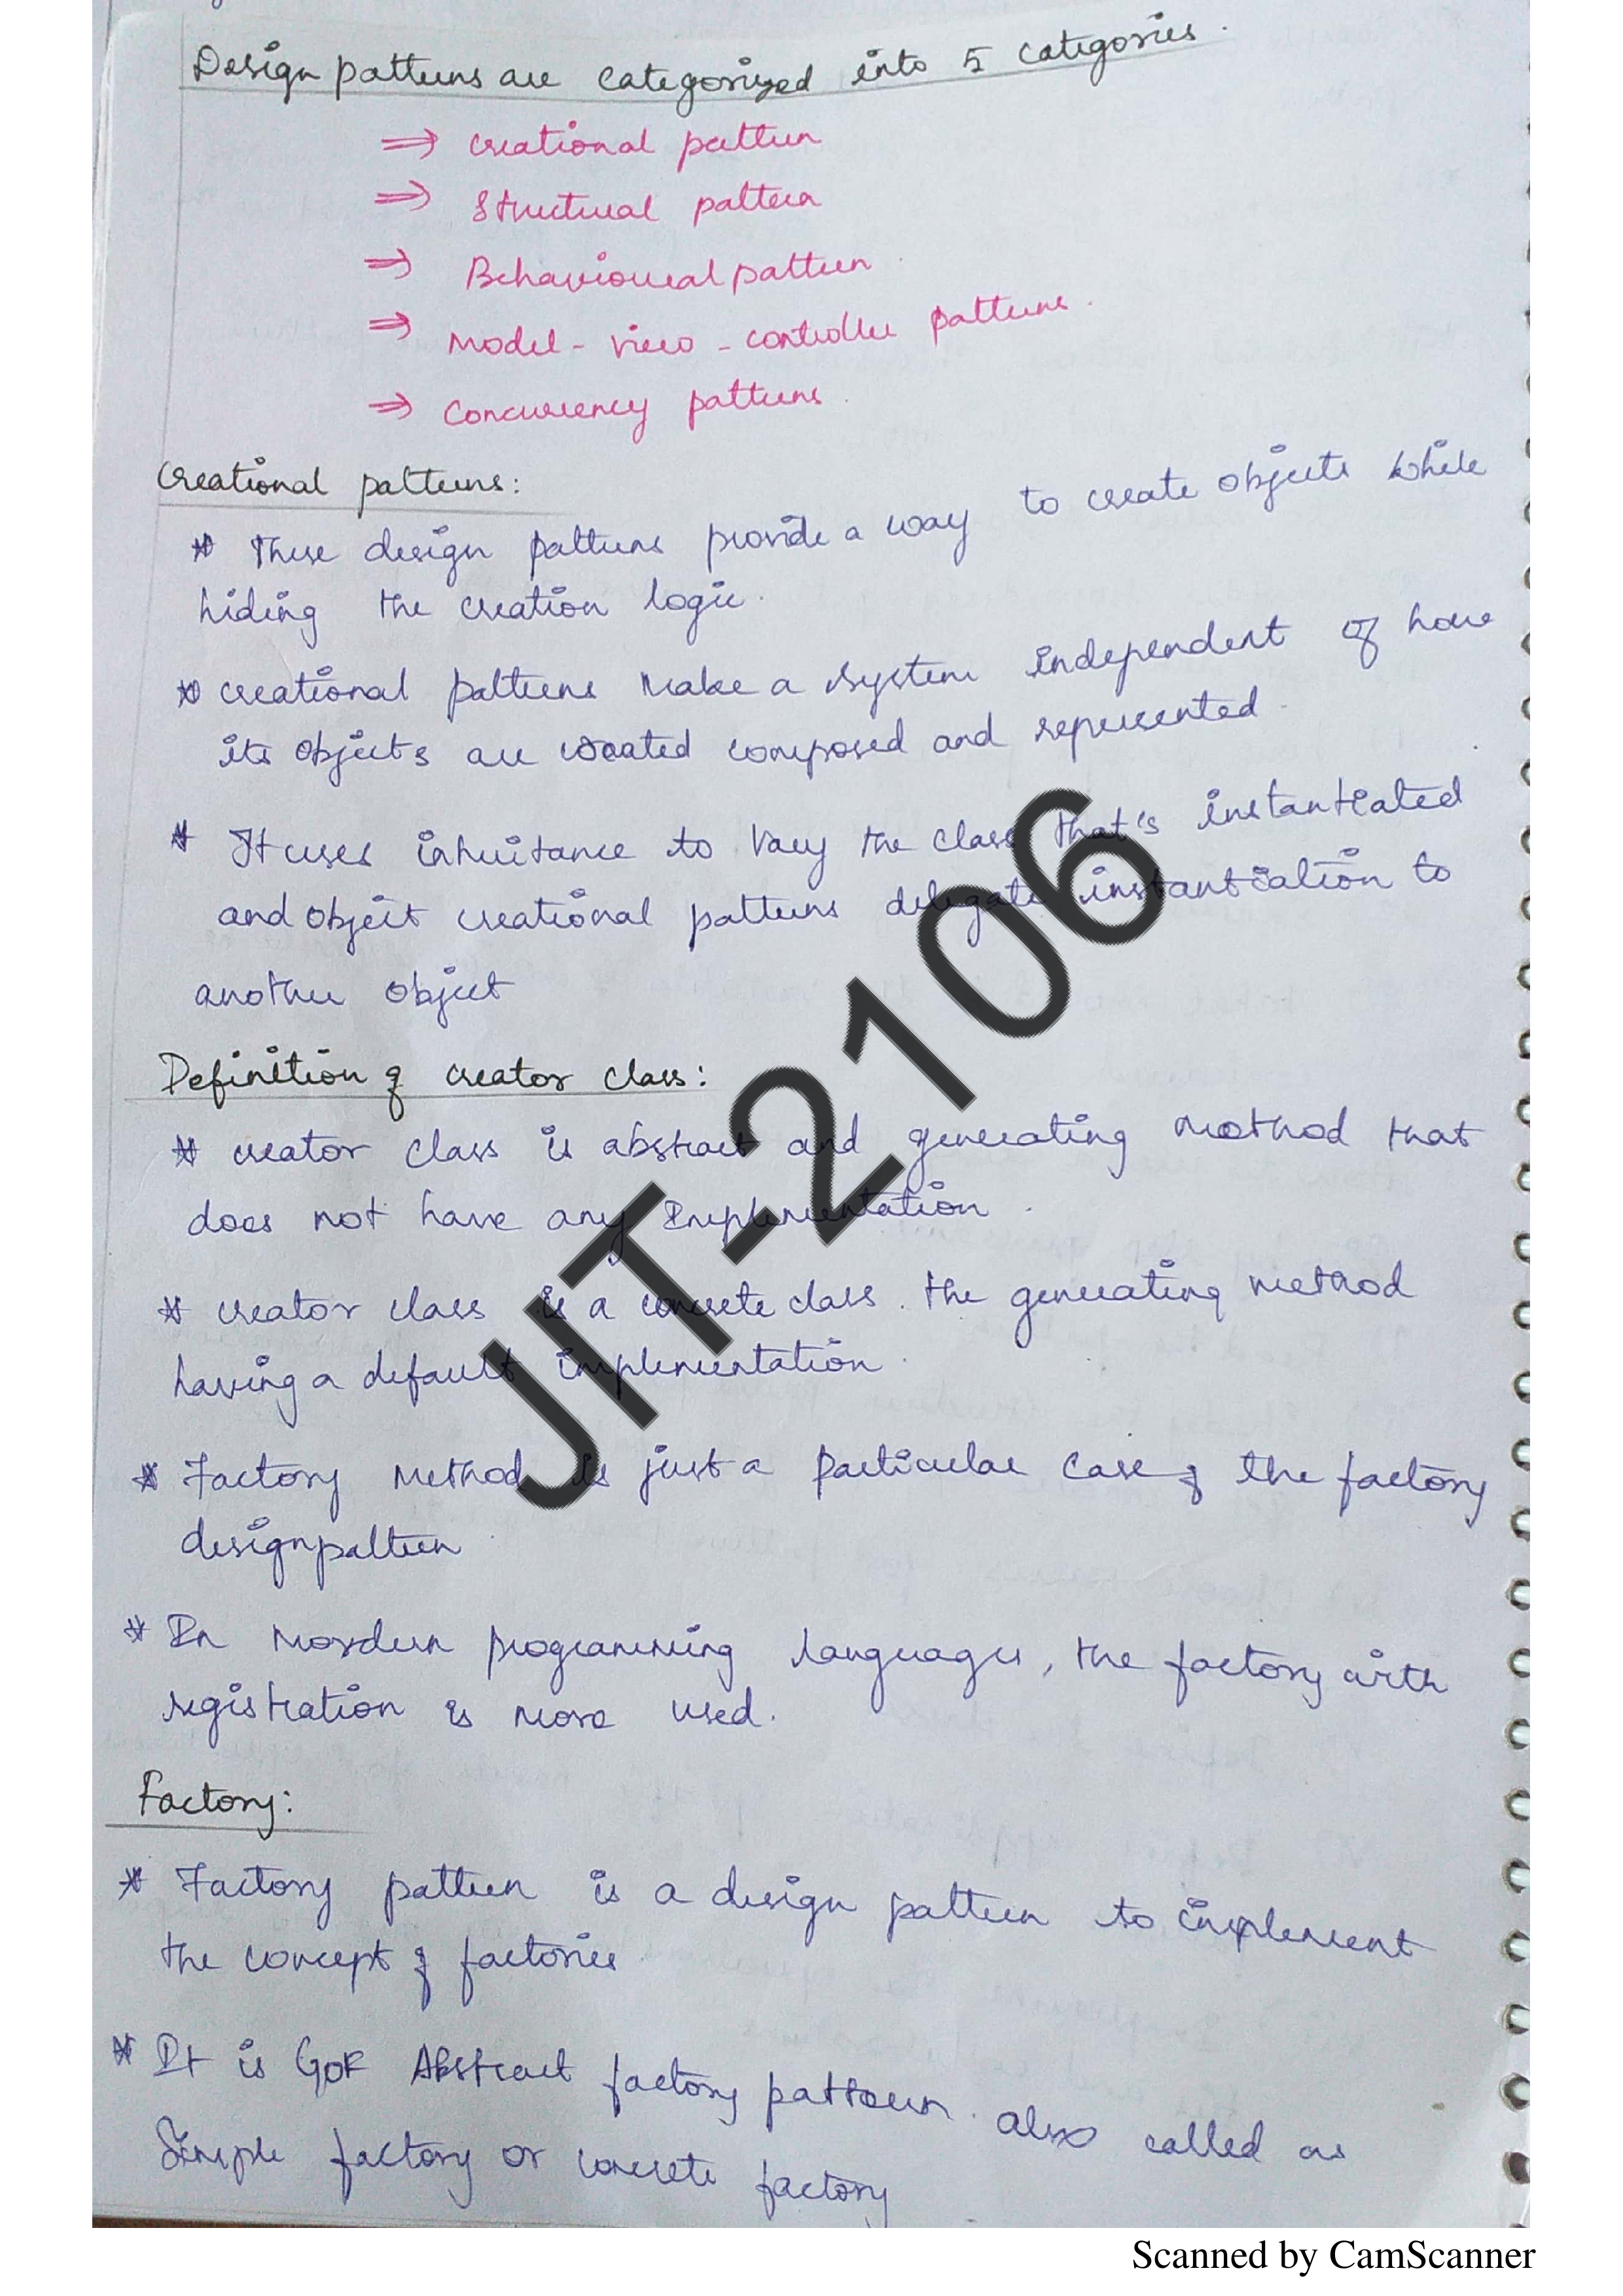 Design patterns are categorized into 5 categories.
⇒ Creational pattern
⇒ Structural pattern
⇒ Behavioural pattern
⇒ Model - view - controller patterns.
⇒ Concurrency patterns.
Creational patterns:
* These design patterns provide a way to create objects while
hiding the creation logic.
* Creational patterns make a system independent of how
its objects are created composed and represented.
* It uses inheritance to vary the class that's instantiated
and object creational patterns delegate instantiation to
another object
Definition of creator class:
* creator class is abstract and generating method that
does not have any Implementation.
* creator class is a concrete class. the generating method
having a default implementation.
* Factory Method is just a particular case of the factory
design pattern.
* In mordern programming languages, the factory with
registration is more used.
Factory:
* Factory pattern is a design pattern to implement
the concept of factories.
* It is GoF Abstract factory pattern. also called as
Simple factory or concrete factory
JIT-2106
Scanned by CamScanner